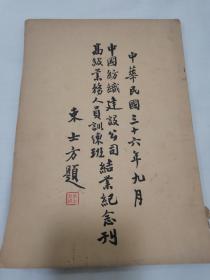 中華民國三十六年九月
中國紡織建設公司
高級業務人員訓練班結業紀念刊
束士方題